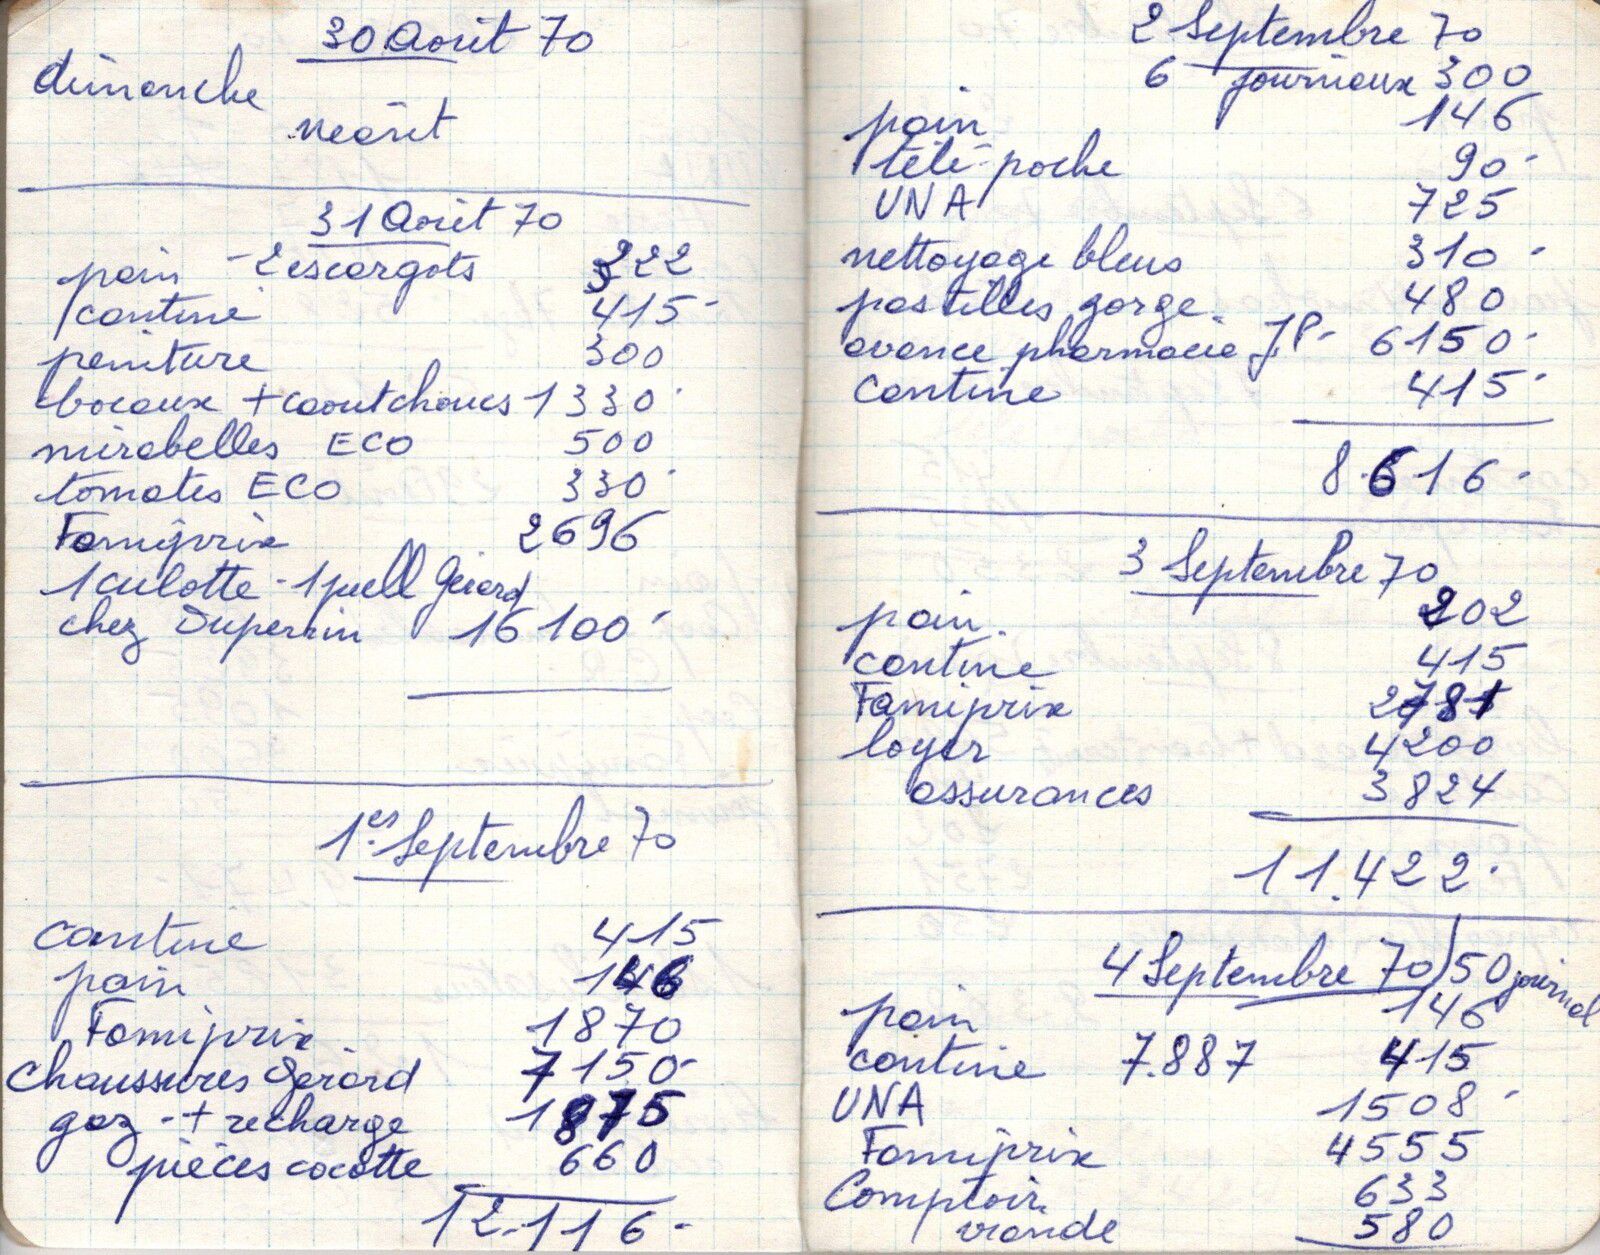 30 Août 70
dimanche
néant
31 Août 70
pain - 2 escargots 222
cantine 415-
peinture 300
bocaux + caoutchoucs 1330-
mirabelles ECO 500
tomates ECO 330-
Famiprix 2696
1 culotte - 1 pull Gérard
chez Duperrin 16100-
1er Septembre 70
cantine 415
pain 146
Famiprix 1870
chaussures Gérard 7150-
gaz + recharge 1875
pièces cocotte 660
12.116-
2 Septembre 70
6 journaux 300
pain 146
télé-poche 90-
UNA 725
nettoyage bleus 310-
pastilles gorge 480
avance pharmacie JP- 6150-
cantine 415-
8.616-
3 Septembre 70
pain 202
cantine 415
Famiprix 2781
loyer 4200
assurances 3824
11.422-
4 Septembre 70) 50 journal
pain 146
cantine 7.887 415
UNA 1508-
Famiprix 4555
Comptoir 633
viande 580